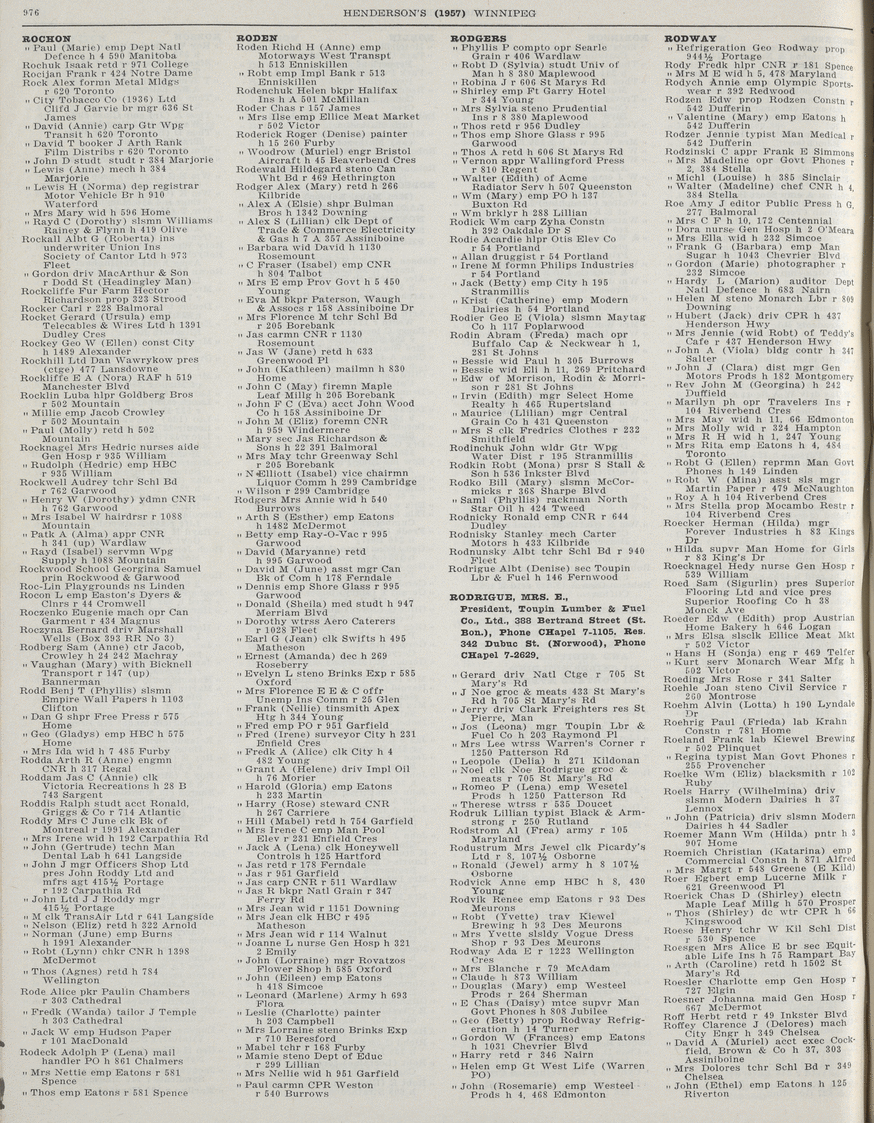 976
HENDERSON'S (1957) WINNIPEG
ROCHON
" Paul (Marie) emp Dept Natl
Defence h 4 590 Manitoba
Rochuk Isaak retd r 971 College
Rocijan Frank r 424 Notre Dame
Rock Alex formn Metal Mldgs
r 620 Toronto
" City Tobacco Co (1936) Ltd
Clifd J Garvie br mgr 636 St
James
" David (Annie) carp Gtr Wpg
Transit h 620 Toronto
" David T booker J Arth Rank
Film Distribs r 620 Toronto
" John D studt studt r 384 Marjorie
" Lewis (Anne) mech h 384
Marjorie
" Lewis H (Norma) dep registrar
Motor Vehicle Br h 910
Waterford
" Mrs Mary wid h 596 Home
" Rayd C (Dorothy) slsmn Williams
Rainey & Flynn h 419 Olive
Rockall Albt G (Roberta) ins
underwriter Union Ins
Society of Cantor Ltd h 973
Fleet
" Gordon driv MacArthur & Son
r Dodd St (Headingley Man)
Rockcliffe Fur Farm Hector
Richardson prop 323 Strood
Rocker Carl r 228 Balmoral
Rocket Gerard (Ursula) emp
Telecables & Wires Ltd h 1391
Dudley Cres
Rockey Geo W (Ellen) const City
h 1489 Alexander
Rockhill Ltd Dan Wawrykow pres
(ctge) 477 Lansdowne
Rockliffe E A (Nora) RAF h 519
Manchester Blvd
Rocklin Luba hlpr Goldberg Bros
r 502 Mountain
" Millie emp Jacob Crowley
r 502 Mountain
" Paul (Molly) retd h 502
Mountain
Rocknagel Mrs Hedric nurses aide
Gen Hosp r 935 William
" Rudolph (Hedric) emp HBC
r 935 William
Rockwell Audrey tchr Schl Bd
r 762 Garwood
" Henry W (Dorothy) ydmn CNR
h 762 Garwood
" Mrs Isabel W hairdrsr r 1088
Mountain
" Patk A (Alma) appr CNR
h 341 (up) Wardlaw
" Rayd (Isabel) servmn Wpg
Supply h 1088 Mountain
Rockwood School Georgina Samuel
prin Rockwood & Garwood
Roc-Lin Playgrounds ns Linden
Rocon L emp Easton's Dyers &
Clnrs r 44 Cromwell
Roczenko Eugenie mach opr Can
Garment r 434 Magnus
Roczyna Bernard driv Marshall
Wells (Box 393 RR No 3)
Rodberg Sam (Anne) ctr Jacob,
Crowley h 24 242 Machray
" Vaughan (Mary) with Bicknell
Transport r 147 (up)
Bannerman
Rodd Benj T (Phyllis) slsmn
Empire Wall Papers h 1103
Clifton
" Dan G shpr Free Press r 575
Home
" Geo (Gladys) emp HBC h 575
Home
" Mrs Ida wid h 7 485 Furby
Rodda Arth R (Anne) engmn
CNR h 317 Regal
Roddam Jas C (Annie) clk
Victoria Recreations h 28 B
743 Sargent
Roddis Ralph studt acct Ronald,
Griggs & Co r 714 Atlantic
Roddy Mrs C June clk Bk of
Montreal r 1991 Alexander
" Mrs Irene wid h 192 Carpathia Rd
" John (Gertrude) techn Man
Dental Lab h 641 Langside
" John J mgr Officers Shop Ltd
pres John Roddy Ltd and
mfrs agt 415½ Portage
r 192 Carpathia Rd
" John Ltd J J Roddy mgr
415½ Portage
" M clk TransAir Ltd r 641 Langside
" Nelson (Eliz) retd h 322 Arnold
" Norman (June) emp Burns
h 1991 Alexander
" Robt (Lynn) chkr CNR h 1398
McDermot
" Thos (Agnes) retd h 784
Wellington
Rode Alice pkr Paulin Chambers
r 303 Cathedral
" Fredk (Wanda) tailor J Temple
h 303 Cathedral
" Jack W emp Hudson Paper
r 101 MacDonald
Rodeck Adolph P (Lena) mail
handler PO h 861 Chalmers
" Mrs Nettie emp Eatons r 581
Spence
" Thos emp Eatons r 581 Spence
RODEN
Roden Richd H (Anne) emp
Motorways West Transpt
h 513 Enniskillen
" Robt emp Impl Bank r 513
Enniskillen
Rodenchuk Helen bkpr Halifax
Ins h A 501 McMillan
Roder Chas r 157 James
" Mrs Ilse emp Ellice Meat Market
r 502 Victor
Roderick Roger (Denise) painter
h 15 260 Furby
" Woodrow (Muriel) engr Bristol
Aircraft h 45 Beaverbend Cres
Rodewald Hildegard steno Can
Wht Bd r 469 Hetherington
Rodger Alex (Mary) retd h 266
Kilbride
" Alex A (Elsie) shpr Bulman
Bros h 1342 Downing
" Alex S (Lillian) clk Dept of
Trade & Commerce Electricity
& Gas h 7 A 357 Assiniboine
" Barbara wid David h 1130
Rosemount
" C Fraser (Isabel) emp CNR
h 804 Talbot
" Mrs E emp Prov Govt h 5 450
Young
" Eva M bkpr Paterson, Waugh
& Assocs r 158 Assiniboine Dr
" Mrs Florence M tchr Schl Bd
r 205 Borebank
" Jas carmn CNR r 1130
Rosemount
" Jas W (Jane) retd h 633
Greenwood Pl
" John (Kathleen) mailmn h 830
Home
" John C (May) firemn Maple
Leaf Millg h 205 Borebank
" John F C (Eva) acct John Wood
Co h 158 Assiniboine Dr
" John M (Eliz) foremn CNR
h 959 Windermere
" Mary sec Jas Richardson &
Sons h 22 391 Balmoral
" Mrs May tchr Greenway Schl
r 205 Borebank
" N Elliott (Isabel) vice chairmn
Liquor Comm h 299 Cambridge
" Wilson r 299 Cambridge
Rodgers Mrs Annie wid h 540
Burrows
" Arth S (Esther) emp Eatons
h 1482 McDermot
" Betty emp Ray-O-Vac r 995
Garwood
" David (Maryanne) retd
h 995 Garwood
" David M (June) asst mgr Can
Bk of Com h 178 Ferndale
" Dennis emp Shore Glass r 995
Garwood
" Donald (Sheila) med studt h 947
Merriam Blvd
" Dorothy wtrss Aero Caterers
r 1028 Fleet
" Earl G (Jean) clk Swifts h 495
Matheson
" Ernest (Amanda) dec h 269
Roseberry
" Evelyn L steno Brinks Exp r 585
Oxford
" Mrs Florence E E & C offr
Unemp Ins Comm r 25 Glen
" Frank (Nellie) tinsmith Apex
Htg h 344 Young
" Fred emp PO r 951 Garfield
" Fred (Irene) surveyor City h 231
Enfield Cres
" Fredk A (Alice) clk City h 4
482 Young
" Grant A (Helene) driv Impl Oil
h 76 Morier
" Harold (Gloria) emp Eatons
h 233 Martin
" Harry (Rose) steward CNR
h 267 Carriere
" Hill (Mabel) retd h 754 Garfield
" Mrs Irene C emp Man Pool
Elev r 231 Enfield Cres
" Jack A (Lena) clk Honeywell
Controls h 125 Hartford
" Jas retd r 178 Ferndale
" Jas r 951 Garfield
" Jas carp CNR r 511 Wardlaw
" Jas R bkpr Natl Grain r 347
Ferry Rd
" Mrs Jean wid r 1151 Downing
" Mrs Jean clk HBC r 495
Matheson
" Mrs Jean wid r 114 Walnut
" Joanne L nurse Gen Hosp h 321
2 Emily
" John (Lorraine) mgr Rovatzos
Flower Shop h 585 Oxford
" John (Eileen) emp Eatons
h 418 Simcoe
" Leonard (Marlene) Army h 693
Flora
" Leslie (Charlotte) painter
h 203 Campbell
" Mrs Lorraine steno Brinks Exp
r 710 Beresford
" Mabel tchr r 168 Furby
" Mamie steno Dept of Educ
r 299 Lillian
" Mrs Nellie wid h 951 Garfield
" Paul carmn CPR Weston
r 540 Burrows
RODGERS
" Phyllis P compto opr Searle
Grain r 406 Wardlaw
" Robt D (Sylvia) studt Univ of
Man h 8 380 Maplewood
" Robina J r 606 St Marys Rd
" Shirley emp Ft Garry Hotel
r 344 Young
" Mrs Sylvia steno Prudential
Ins r 8 380 Maplewood
" Thos retd r 956 Dudley
" Thos emp Shore Glass r 995
Garwood
" Thos A retd h 606 St Marys Rd
" Vernon appr Wallingford Press
r 810 Regent
" Walter (Edith) of Acme
Radiator Serv h 507 Queenston
" Wm (Mary) emp PO h 137
Buxton Rd
" Wm brklyr h 288 Lillian
Rodick Wm carp Zyha Constn
h 392 Oakdale Dr S
Rodie Acardie hlpr Otis Elev Co
r 54 Portland
" Allan druggist r 54 Portland
" Irene M formn Philips Industries
r 54 Portland
" Jack (Betty) emp City h 195
Stranmillis
" Krist (Catherine) emp Modern
Dairies h 54 Portland
Rodier Geo E (Viola) slsmn Maytag
Co h 117 Poplarwood
Rodin Abram (Freda) mach opr
Buffalo Cap & Neckwear h 1,
281 St Johns
" Bessie wid Paul h 305 Burrows
" Bessie wid Eli h 11, 269 Pritchard
" Edw of Morrison, Rodin & Morri-
son r 281 St Johns
" Irvin (Edith) mgr Select Home
Realty h 465 Rupertsland
" Maurice (Llilian) mgr Central
Grain Co h 431 Queenston
" Mrs S clk Fredrics Clothes r 232
Smithfield
Rodinchuk John wldr Gtr Wpg
Water Dist r 195 Stranmillis
Rodkin Robt (Mona) prsr S Stall &
Son h 536 Inkster Blvd
Rodko Bill (Mary) slsmn McCor-
micks r 368 Sharpe Blvd
" Saml (Phyllis) rackman North
Star Oil h 424 Tweed
Rodnicky Ronald emp CNR r 644
Dudley
Rodnisky Stanley mech Carter
Motors h 433 Kilbride
Rodnunsky Albt tchr Schl Bd r 940
Fleet
Rodrigue Albt (Denise) sec Toupin
Lbr & Fuel h 146 Fernwood
RODRIGUE, MRS. E.,
President, Toupin Lumber & Fuel
Co., Ltd., 388 Bertrand Street (St.
Bon.), Phone CHapel 7-1105, Res.
342 Dubuc St. (Norwood), Phone
CHapel 7-2629.
" Gerard driv Natl Ctge r 705 St
Mary's Rd
" J Noe groc & meats 433 St Mary's
Rd h 705 St Mary's Rd
" Jerry driv Clark Freighters res St
Pierre, Man
" Jos (Leona) mgr Toupin Lbr &
Fuel Co h 203 Raymond Pl
" Mrs Lee wtrss Warren's Corner r
1250 Patterson Rd
" Leopole (Delia) h 271 Kildonan
" Noel clk Noe Rodrigue groc &
meats r 705 St Mary's Rd
" Romeo P (Lena) emp Wesetel
Prods h 1250 Patterson Rd
" Therese wtrss r 535 Doucet
Rodruk Lillian typist Black & Arm-
strong r 250 Rutland
Rodstrom Al (Frea) army r 105
Maryland
Rodustrum Mrs Jewel clk Picardy's
Ltd r 8, 107½ Osborne
" Ronald (Jewel) army h 8 107½
Osborne
Rodvick Anne emp HBC h 8, 430
Young
Rodvik Renee emp Eatons r 93 Des
Meurons
" Robt (Yvette) trav Kiewel
Brewing h 93 Des Meurons
" Mrs Yvette slsldy Vogue Dress
Shop r 93 Des Meurons
Rodway Ada E r 1223 Wellington
Cres
" Mrs Blanche r 79 McAdam
" Claude h 873 William
" Douglas (Mary) emp Westeel
Prods r 264 Sherman
" E Chas (Daisy) mtce supvr Man
Govt Phones h 808 Jubilee
" Geo (Betty) prop Rodway Refrig-
eration h 14 Turner
" Gordon W (Frances) emp Eatons
h 1031 Chevrier Blvd
" Harry retd r 346 Nairn
" Helen emp Gt West Life (Warren
PO)
" John (Rosemarie) emp Westeel
Prods h 4, 468 Edmonton
RODWAY
" Refrigeration Geo Rodway prop
944½ Portage
Rody Fredk hlpr CNR r 181 Spence
" Mrs M E wid h 5, 478 Maryland
Rodych Annie emp Olympic Sports-
wear r 392 Redwood
Rodzen Edw prop Rodzen Constn r
542 Dufferin
" Valentine (Mary) emp Eatons h
542 Dufferin
Rodzer Jennie typist Man Medical r
542 Dufferin
Rodzinski C appr Frank E Simmons
" Mrs Madeline opr Govt Phones r
2, 384 Stella
" Michl (Louise) h 385 Sinclair
" Walter (Madeline) chef CNR h 4,
384 Stella
Roe Amy J editor Public Press h G,
277 Balmoral
" Mrs C F h 10, 172 Centennial
" Dora nurse Gen Hosp h 2 O'Meara
" Mrs Ella wid h 232 Simcoe
" Frank G (Barbara) emp Man
Sugar h 1043 Chevrier Blvd
" Gordon (Marie) photographer r
232 Simcoe
" Hardy L (Marion) auditor Dept
Natl Defence h 683 Nairn
" Helen M steno Monarch Lbr r 809
Downing
" Hubert (Jack) driv CPR h 437
Henderson Hwy
" Mrs Jennie (wid Robt) of Teddy's
Cafe r 437 Henderson Hwy
" John A (Viola) bldg contr h 347
Salter
" John J (Clara) dist mgr Gen
Motors Prods h 182 Montgomery
" Rev John M (Georgina) h 242
Duffield
" Marilyn ph opr Travelers Ins r
104 Riverbend Cres
" Mrs May wid h 11, 66 Edmonton
" Mrs Molly wid r 324 Hampton
" Mrs R H wid h 1, 247 Young
" Mrs Rita emp Eatons h 4, 484
Toronto
" Robt G (Ellen) reprmn Man Govt
Phones h 149 Linden
" Robt W (Mina) asst sls mgr
Martin Paper r 479 McNaughton
" Roy A h 104 Riverbend Cres
" Mrs Stella prop Mocambo Restr r
104 Riverbend Cres
Roecker Herman (Hilda) mgr
Forever Industries h 83 Kings
Dr
" Hilda supvr Man Home for Girls
r 83 King's Dr
Roecknagel Hedy nurse Gen Hosp r
539 William
Roed Sam (Sigurlin) pres Superior
Flooring Ltd and vice pres
Superior Roofing Co h 38
Monck Ave
Roeder Edw (Edith) prop Austrian
Home Bakery h 646 Logan
" Mrs Elsa slsclk Ellice Meat Mkt
r 502 Victor
" Hans H (Sonja) eng r 469 Telfer
" Kurt serv Monarch Wear Mfg h
502 Victor
Roeding Mrs Rose r 341 Salter
Roehle Joan steno Civil Service r
260 Montrose
Roehm Alvin (Lotta) h 190 Lyndale
Dr
Roehrig Paul (Frieda) lab Krahn
Constn r 781 Home
Roeland Frank lab Kiewel Brewing
r 502 Plinquet
" Regina typist Man Govt Phones r
255 Provencher
Roelke Wm (Eliz) blacksmith r 102
Ruby
Roels Harry (Wilhelmina) driv
slsmn Modern Dairies h 37
Lennox
" John (Patricia) driv slsmn Modern
Dairies h 44 Sadler
Roemer Mann Wm (Hilda) pntr h 3
907 Home
Roemich Christian (Katarina) emp
Commercial Constn h 871 Alfred
" Mrs Margt r 548 Greene (E Kild)
Roer Egbert emp Lucerne Milk r
621 Greenwood Pl
Roerick Chas D (Shirley) electn
Maple Leaf Millg h 570 Prosper
" Thos (Shirley) dc wtr CPR h 66
Kingswood
Roese Henry tchr W Kil Schl Dist
r 530 Spence
Roesgen Mrs Alice E br sec Equit-
able Life Ins h 75 Rampart Bay
" Arth (Caroline) retd h 1502 St
Mary's Rd
Roesler Charlotte emp Gen Hosp r
727 Elgin
Roesner Johanna maid Gen Hosp r
667 McDermot
Roff Herbt retd r 49 Inkster Blvd
Roffey Clarence J (Delores) mach
City Engr h 349 Chelsea
" David A (Muriel) acct exec Cock-
field, Brown & Co h 37, 303
Assiniboine
" Mrs Dolores tchr Schl Bd r 349
Chelsea
" John (Ethel) emp Eatons h 125
Riverton